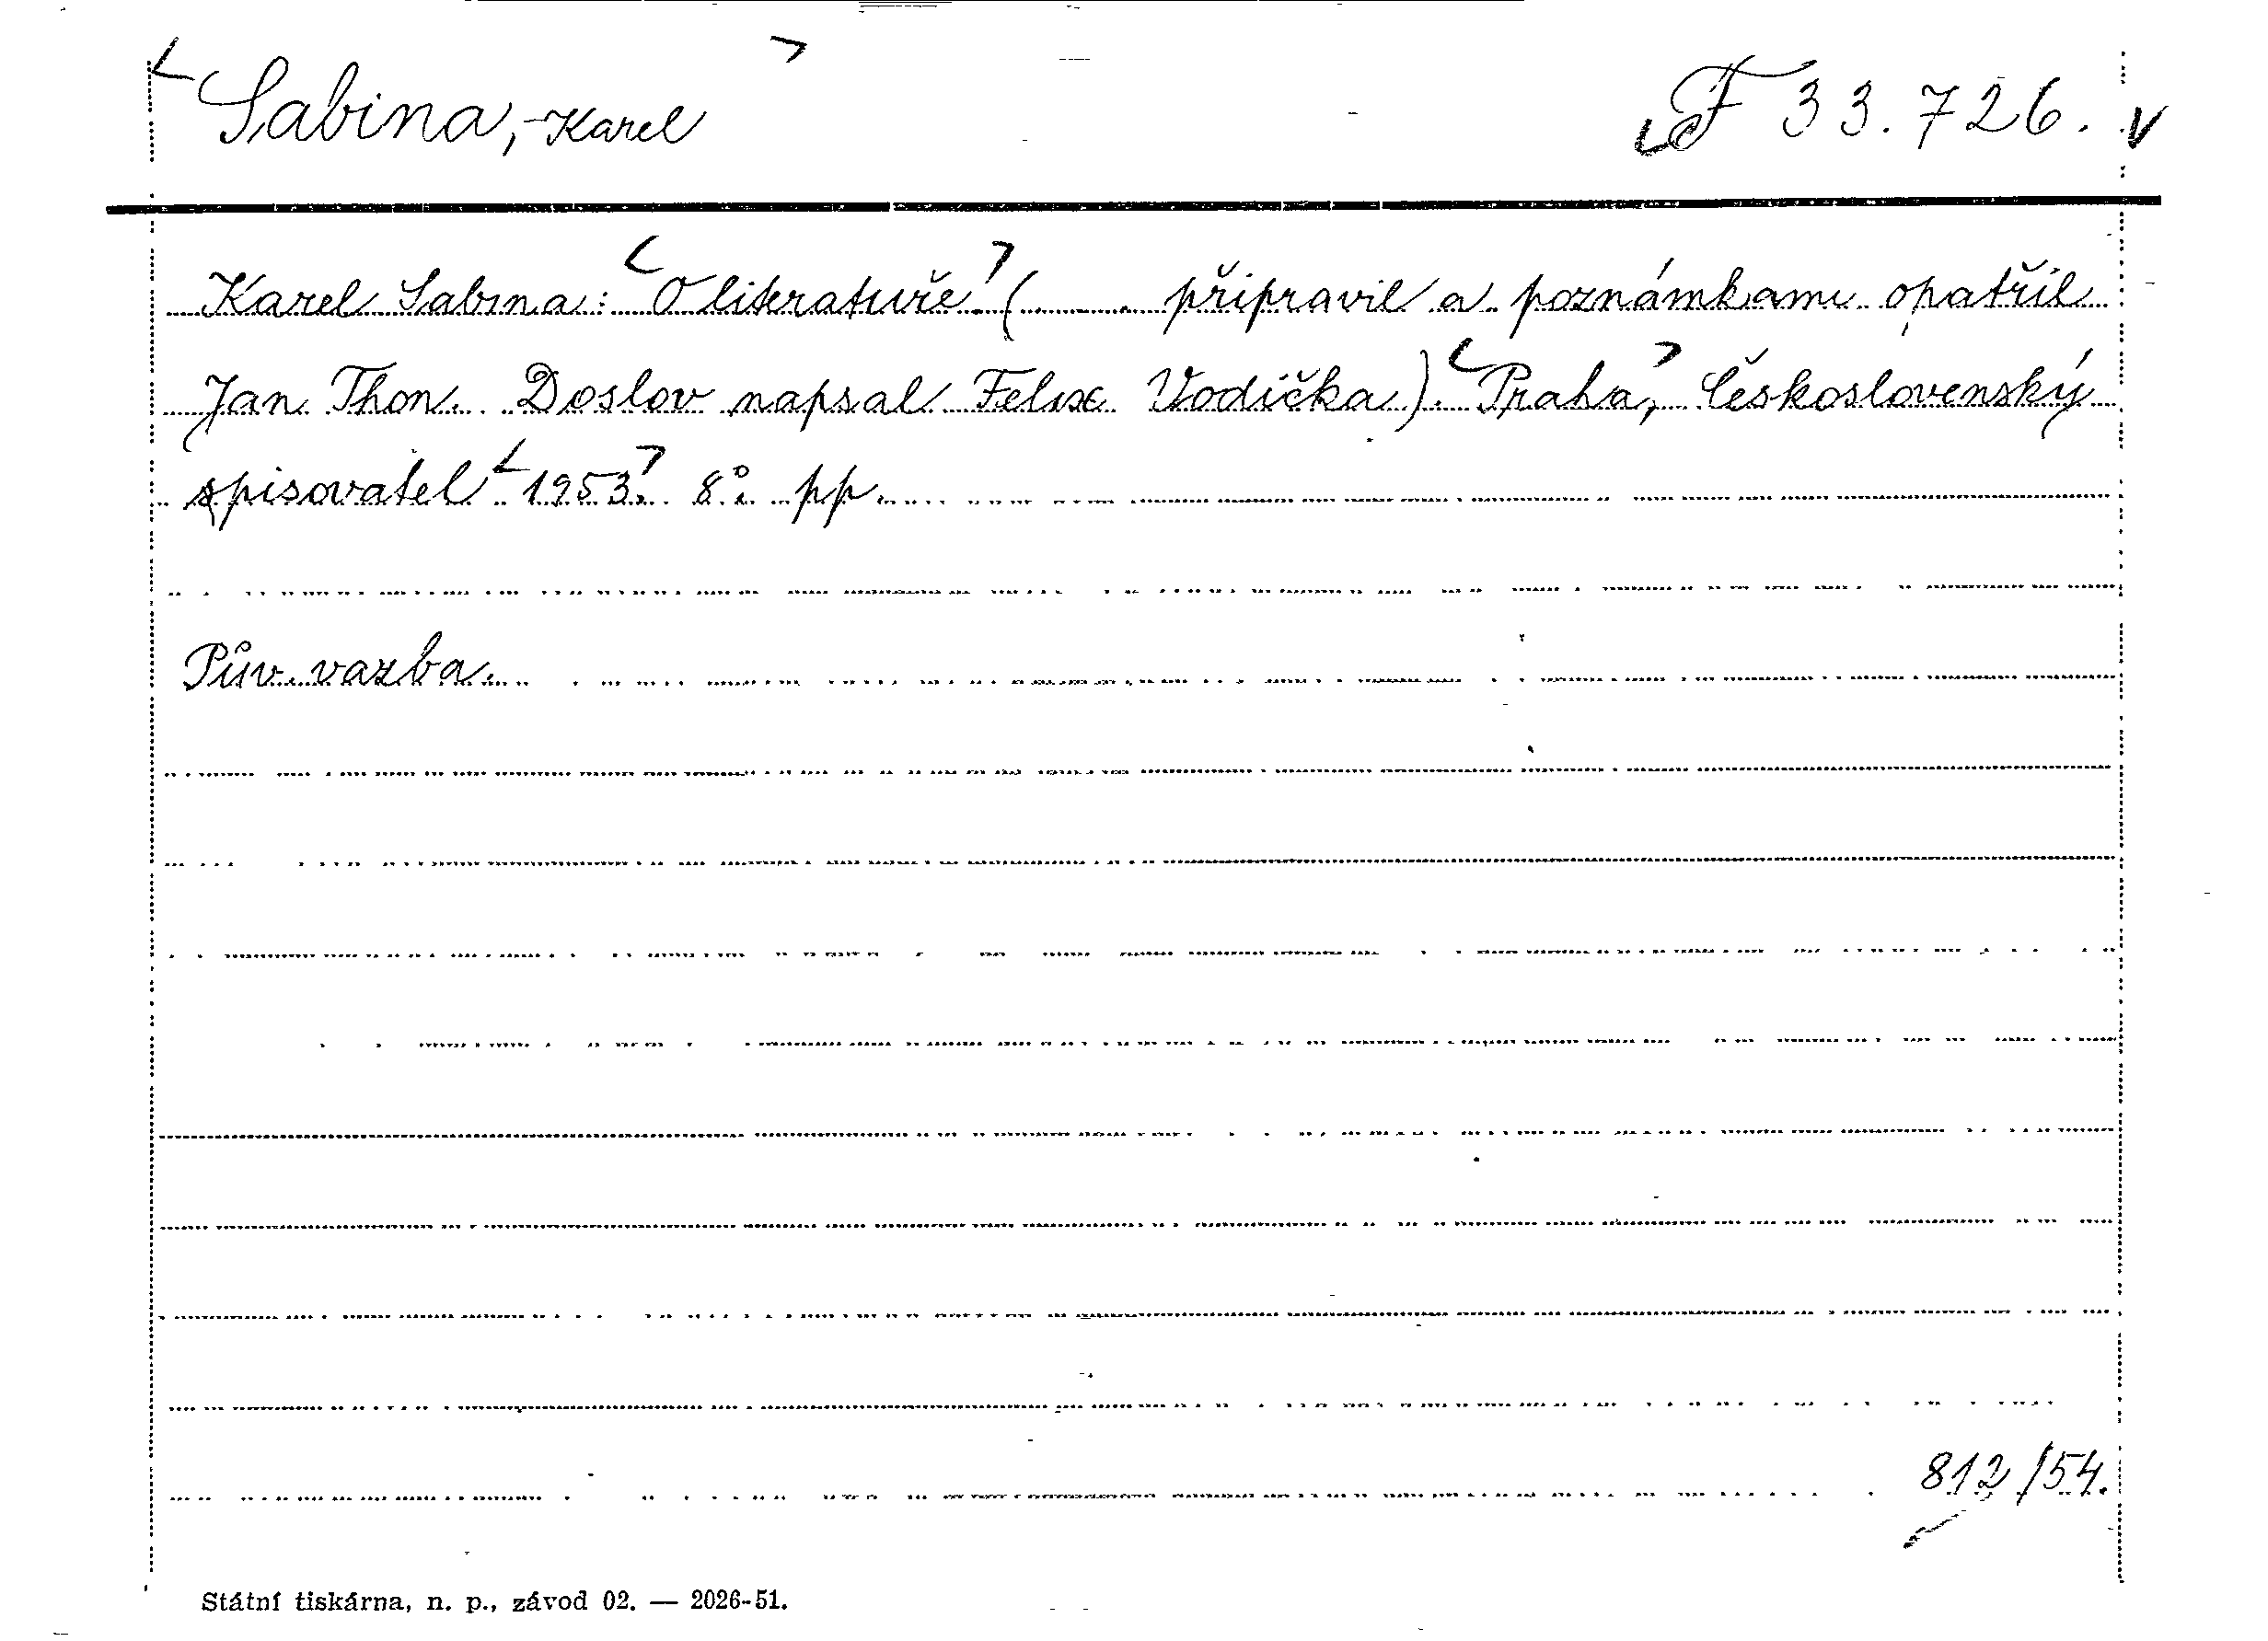 Sabina, Karel
F 33.726.
Karel Sabina: O literatuře. (....... připravil a poznámkami opatřil
Jan Thon. Doslov napsal Felix Vodička). Praha, Československý
spisovatel 1953. 8°. pp.
Pův. vazba.
812/54.
Státní tiskárna, n. p., závod 02. — 2026-51.